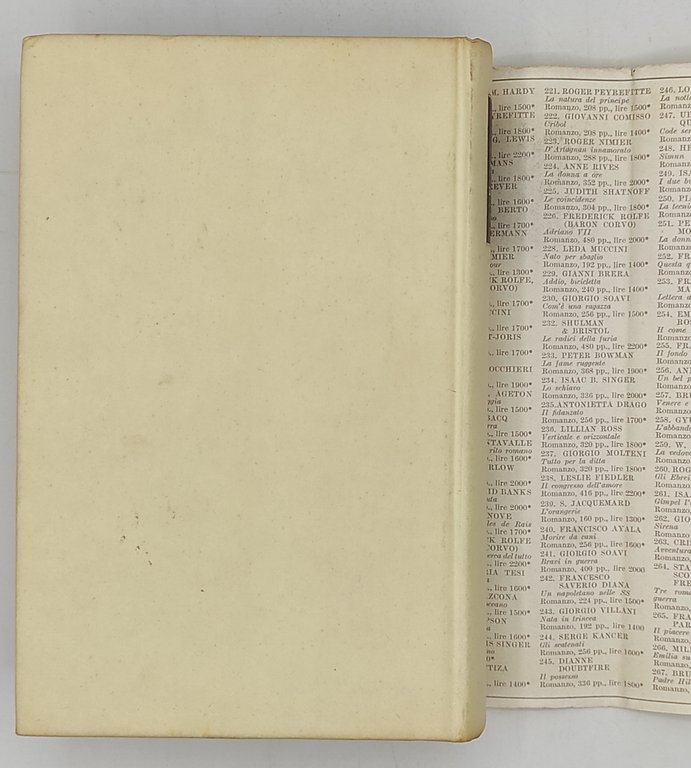 M. HARDY
., lire 1500*
YREFITTE
., lire 1800*
G. LEWIS
., lire 2200*
MANS
., lire 1800*
EVER
., lire 1600*
BERTO
., lire 1700*
ERMANN
., lire 1700*
MIER
our
., lire 1300*
K ROLFE,
ORVO)
., lire 1700*
CINI
., lire 1700*
T-JORIS
., lire 1700*
OCCHIERI
., lire 1900*
. AGETON
., lire 1500*
ACQ
., lire 1500*
TAVALLE
rito romano
., lire 1600*
RLOW
., lire 2000*
ID BANKS
., lire 2000*
NOVE
les de Rais
., lire 1700*
K ROLFE
CORVO)
erca del tutto
., lire 2200*
IA TESI
., lire 1600*
ZCONA
., lire 1500*
SON
., lire 1600*
IS SINGER
TIZA
., lire 1400*
221. ROGER PEYREFITTE
La natura del principe
Romanzo, 208 pp., lire 1500*
222. GIOVANNI COMISSO
Cribol
Romanzo, 208 pp., lire 1400*
223. ROGER NIMIER
D'Artagnan innamorato
Romanzo, 288 pp., lire 1800*
224. ANNE RIVES
La donna a ore
Romanzo, 352 pp., lire 2000*
225. JUDITH SHATNOFF
Le coincidenze
Romanzo, 304 pp., lire 1800*
226. FREDERICK ROLFE
(BARON CORVO)
Adriano VII
Romanzo, 480 pp., lire 2000*
228. LEDA MUCCINI
Nato per sbaglio
Romanzo, 192 pp., lire 1400*
229. GIANNI BRERA
Addio, bicicletta
Romanzo, 240 pp., lire 1400*
230. GIORGIO SOAVI
Com'è una ragazza
Romanzo, 256 pp., lire 1500*
232. SHULMAN
& BRISTOL
Le radici della furia
Romanzo, 480 pp., lire 2200*
233. PETER BOWMAN
La fame ruggente
Romanzo, 368 pp., lire 1900*
234. ISAAC B. SINGER
Lo schiavo
Romanzo, 336 pp., lire 2000*
235. ANTONIETTA DRAGO
Il fidanzato
Romanzo, 256 pp., lire 1700*
236. LILLIAN ROSS
Verticale e orizzontale
Romanzo, 320 pp., lire 1800*
237. GIORGIO MOLTENI
Tutto per la ditta
Romanzo, 320 pp., lire 1800*
238. LESLIE FIEDLER
Il congresso dell'amore
Romanzo, 416 pp., lire 2200*
239. S. JACQUEMARD
L'orangerie
Romanzo, 160 pp., lire 1300*
240. FRANCISCO AYALA
Morire da cani
Romanzo, 256 pp., lire 1600*
241. GIORGIO SOAVI
Bravi in guerra
Romanzo, 400 pp., lire 2000
242. FRANCESCO
SAVERIO DIANA
Un napoletano nelle SS
Romanzo, 224 pp., lire 1500*
243. GIORGIO VILLANI
Nata in trincea
Romanzo, 192 pp., lire 1400
244. SERGE KANCER
Gli scatenati
Romanzo, 256 pp., lire 1600*
245. DIANNE
DOUBTFIRE
Il possesso
Romanzo, 336 pp., lire 1800*
246. LO
La notte
Romanzo
247. UB
QU
Code ses
Romanzo
248. HE
Simun
Romanzo
249. ISA
I due bu
Romanzo
250. PIA
La tecni
Romanzo
251. PE
MO
La donn
Romanzo
252. FR
Questa q
Romanzo
253. FR
MA
Lettera a
Romanzo
254. EM
RO
Il come
Romanzo
255. FRA
Il fondo
Romanzo
256. ANN
Un bel p
Romanzo
257. BRU
Venere e
Romanzo
258. GYU
L'abbando
Romanzo
259. W.
La vedova
Romanzo
260. ROG
Gli Ebrei
Romanzo,
261. ISA
Gimpel l'i
Romanzo,
262. GIO
Sirena
Romanzo,
263. CRI
Avventura
Romanzo,
264. STA
SCO
FRE
Tre roma
guerra
Romanzo,
265. FRA
PAR
Il piacere
Romanzo,
266. MIL
Emilia su
Romanzo,
267. BRU
Padre Hil
Romanzo,